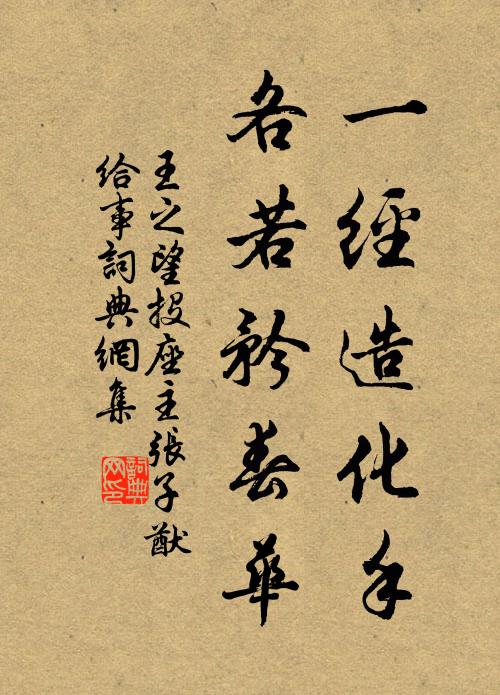 一經造化手
各若矜春華
王之望投座主張子猷
給事詞典網集
詞典網印